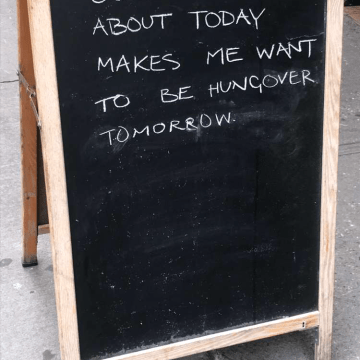 ABOUT TODAY
MAKES ME WANT
TO BE HUNGOVER
TOMORROW.